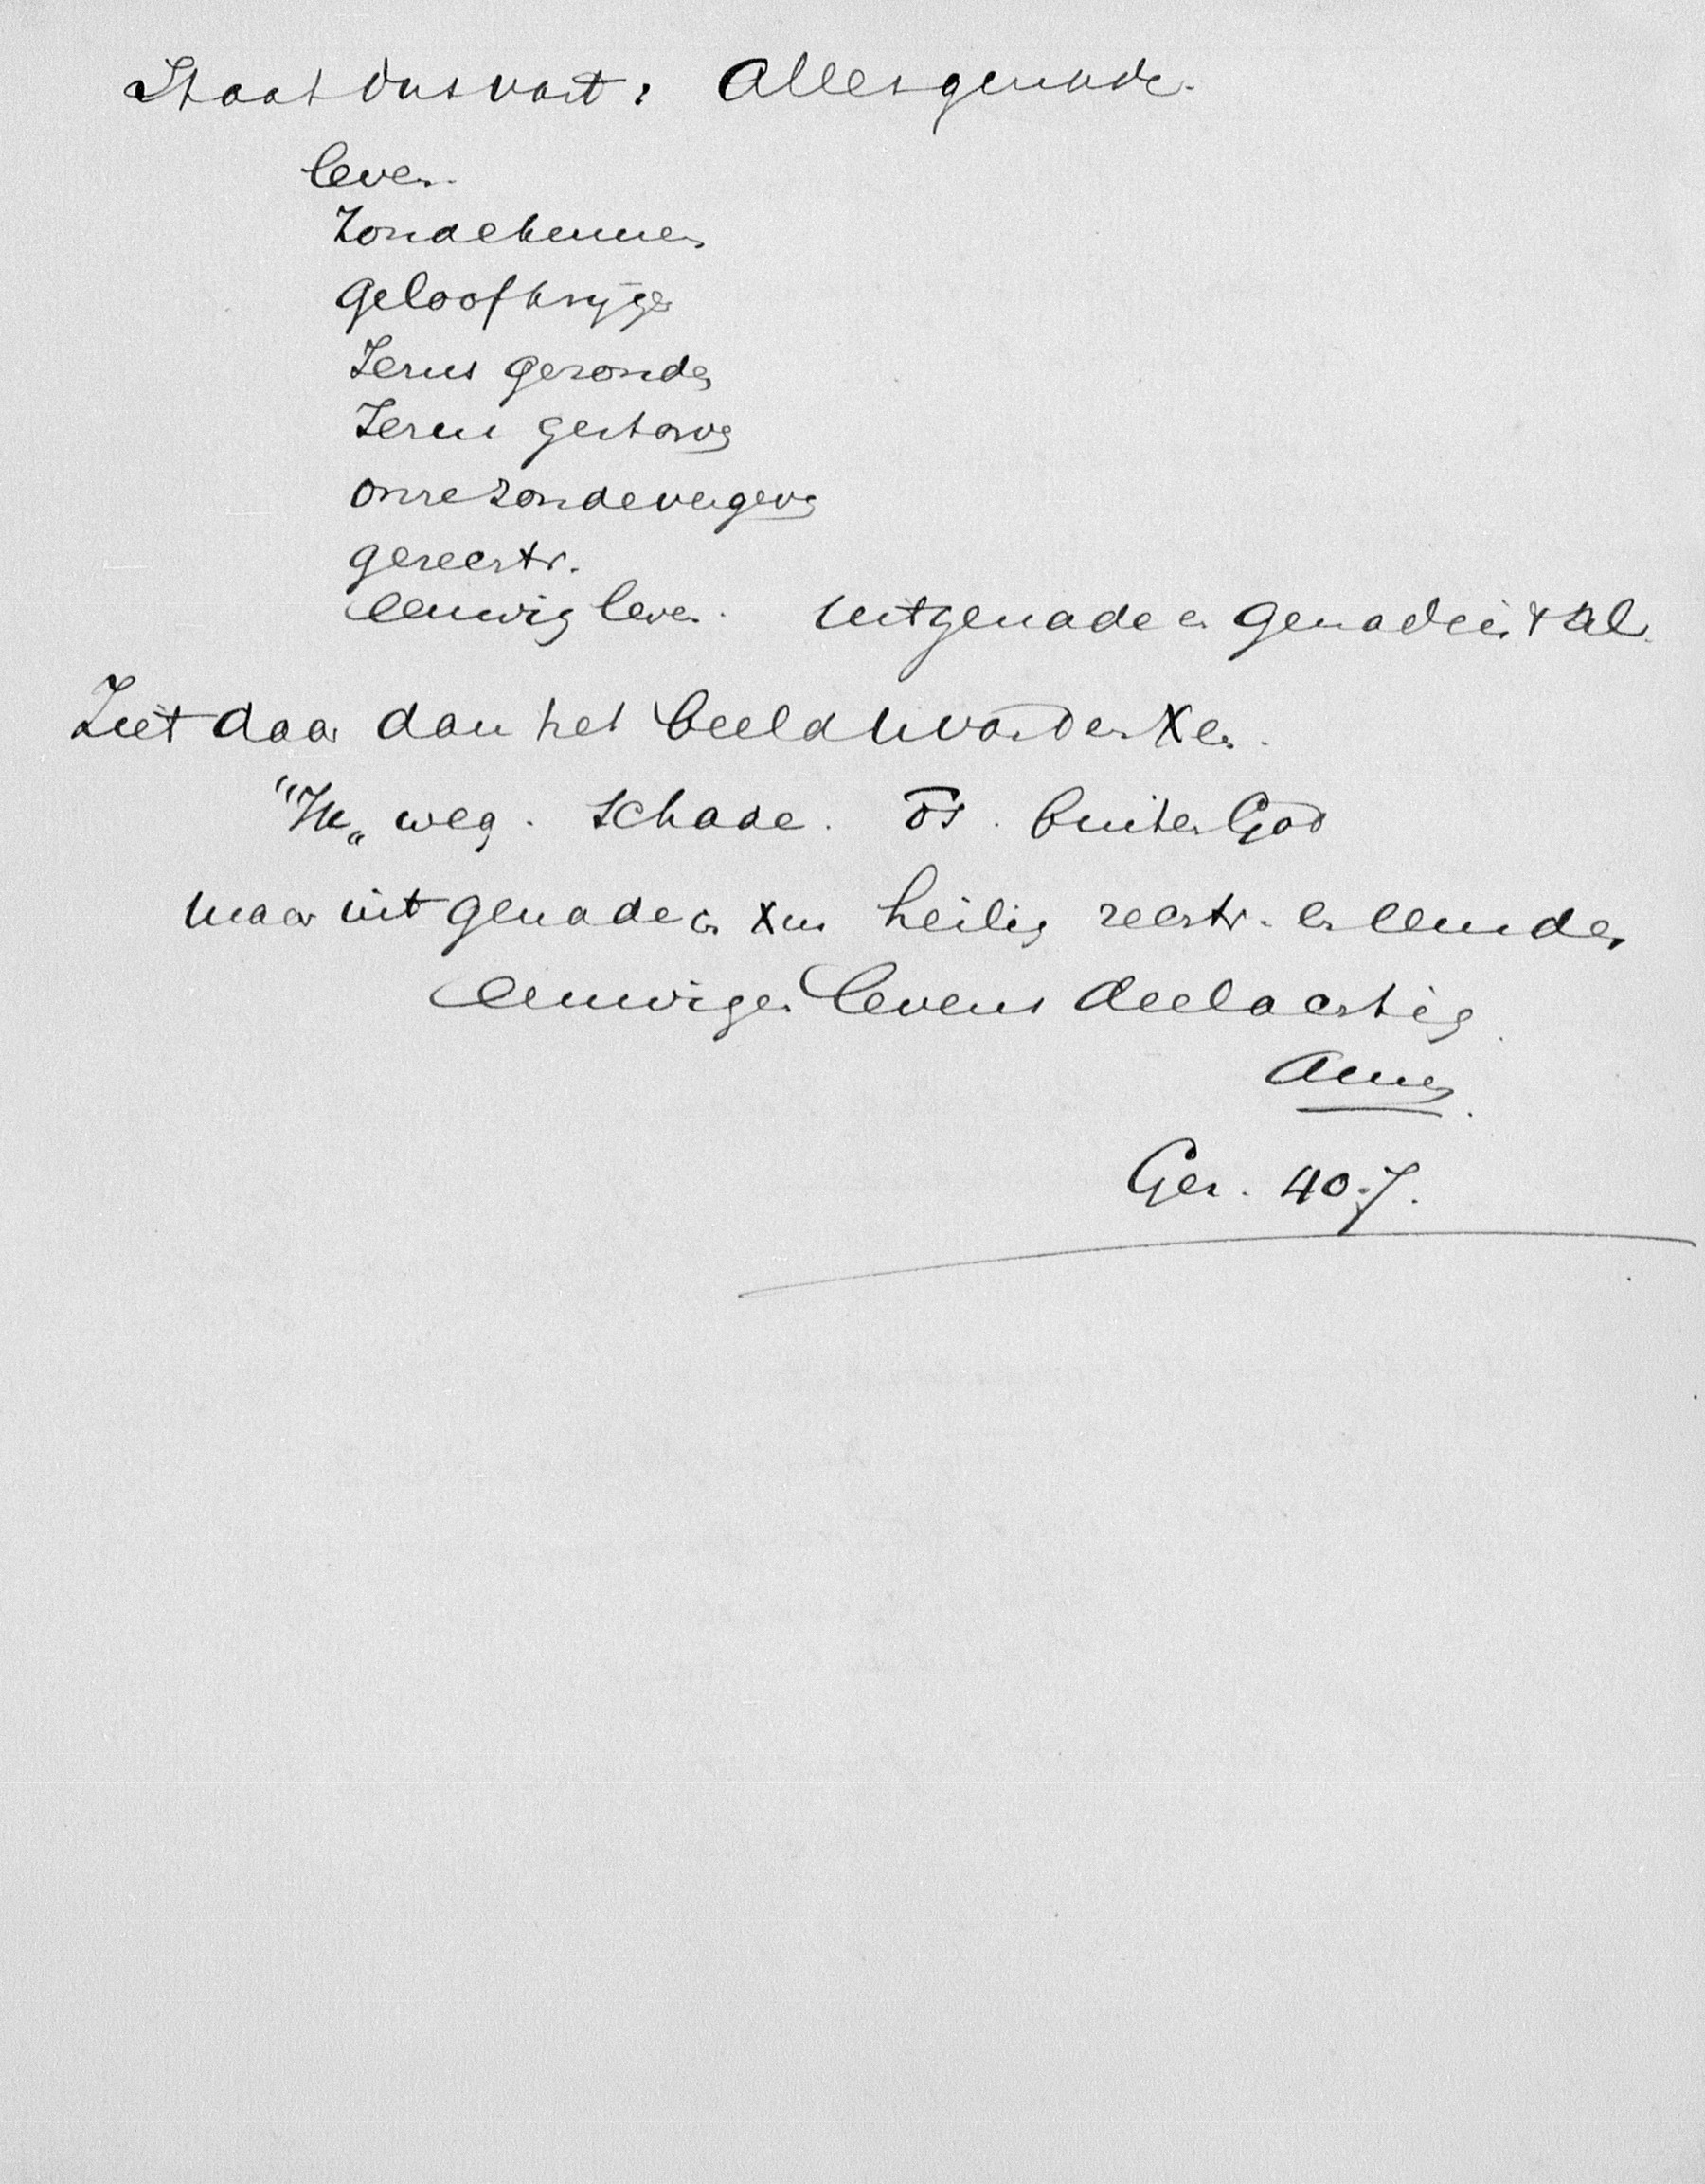 Staat dus vast: Alles genade.
leven.
Zonde kennen
geloof krijgen
Jezus gezonden
Jezus gestorven
onze zonde vergeven
gerechtv.
eeuwig leven. uit genade en genade is 't al.
Ziet daar dan het beeld van den Xen.
"Ik„ weg. Schade. buiten God
maar uit genade en Xus heilig rechtv. en eeuwden
eeuwigen levens deelachtig.
Amen.
Gez. 40:7.